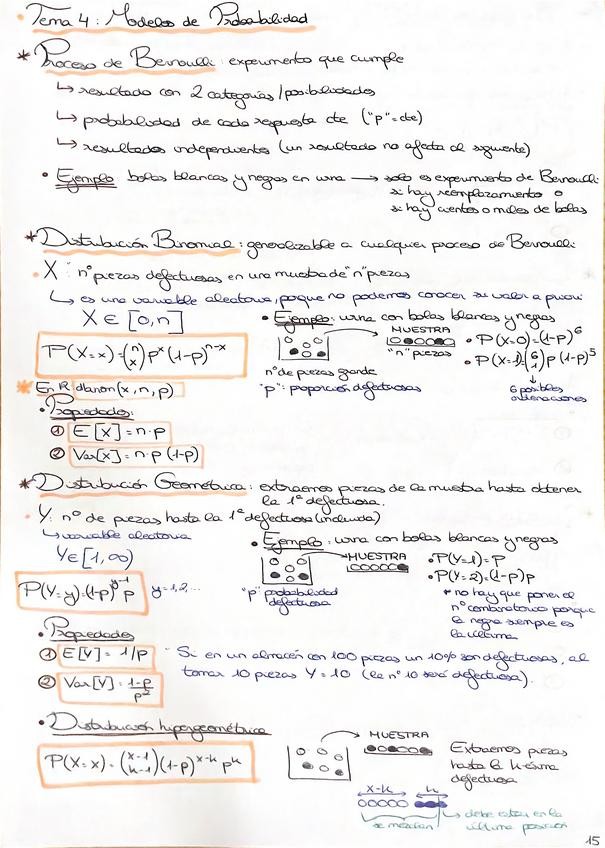 • Tema 4: Modelos de Probabilidad
* Proceso de Bernoulli: experimento que cumple
↳ resultado con 2 categorías/posibilidades
↳ probabilidad de cada respuesta cte ("p"=cte)
↳ resultados independientes (un resultado no afecta al siguiente)
• Ejemplo: bolas blancas y negras en urna → solo es experimento de Bernoulli
si hay reemplazamiento o
si hay cientos o miles de bolas
* Distribución Binomial: generalizable a cualquier proceso de Bernoulli
• X: nº piezas defectuosas en una muestra de "n" piezas
↳ es una variable aleatoria, porque no podemos conocer su valor a priori
X ∈ [0,n]
• Ejemplo: urna con bolas blancas y negras
MUESTRA
"n" piezas
nº de piezas grande
"p": proporción defectuosas
• P(X=0)=(1-p)⁶
• P(X=1)=(6 1) p(1-p)⁵
6 posibles
ordenaciones
P(X=x)=(n x) pˣ (1-p)ⁿ⁻ˣ
* En R: dbinom(x, n, p)
• Propiedades:
① E[X]=n·p
② Var[X]=n·p (1-p)
* Distribución Geométrica: extraemos piezas de la muestra hasta obtener
la 1ª defectuosa.
• Y: nº de piezas hasta la 1ª defectuosa (incluida)
↳ variable aleatoria
Y∈[1,∞)
• Ejemplo: urna con bolas blancas y negras
MUESTRA
"p" probabilidad
defectuosa
• P(Y=1)=P
• P(Y=2)=(1-p)p
* no hay que poner el
nº combinatorio porque
la negra siempre es
la última
P(Y=y)=(1-p)ʸ⁻¹ p y=1,2,...
• Propiedades
① E[Y]=1/p
② Var[Y]=1-p/p²
Si en un almacén con 100 piezas un 10% son defectuosas, al
tomar 10 piezas Y=10 (la nº 10 será defectuosa).
• Distribución hipergeométrica
P(X=x)=(x-1 k-1)(1-p)ˣ⁻ᵏ pᵏ
MUESTRA
Extraemos piezas
hasta la k-ésima
defectuosa
x-k k
se mezclan
↳ debe estar en la
última posición
15